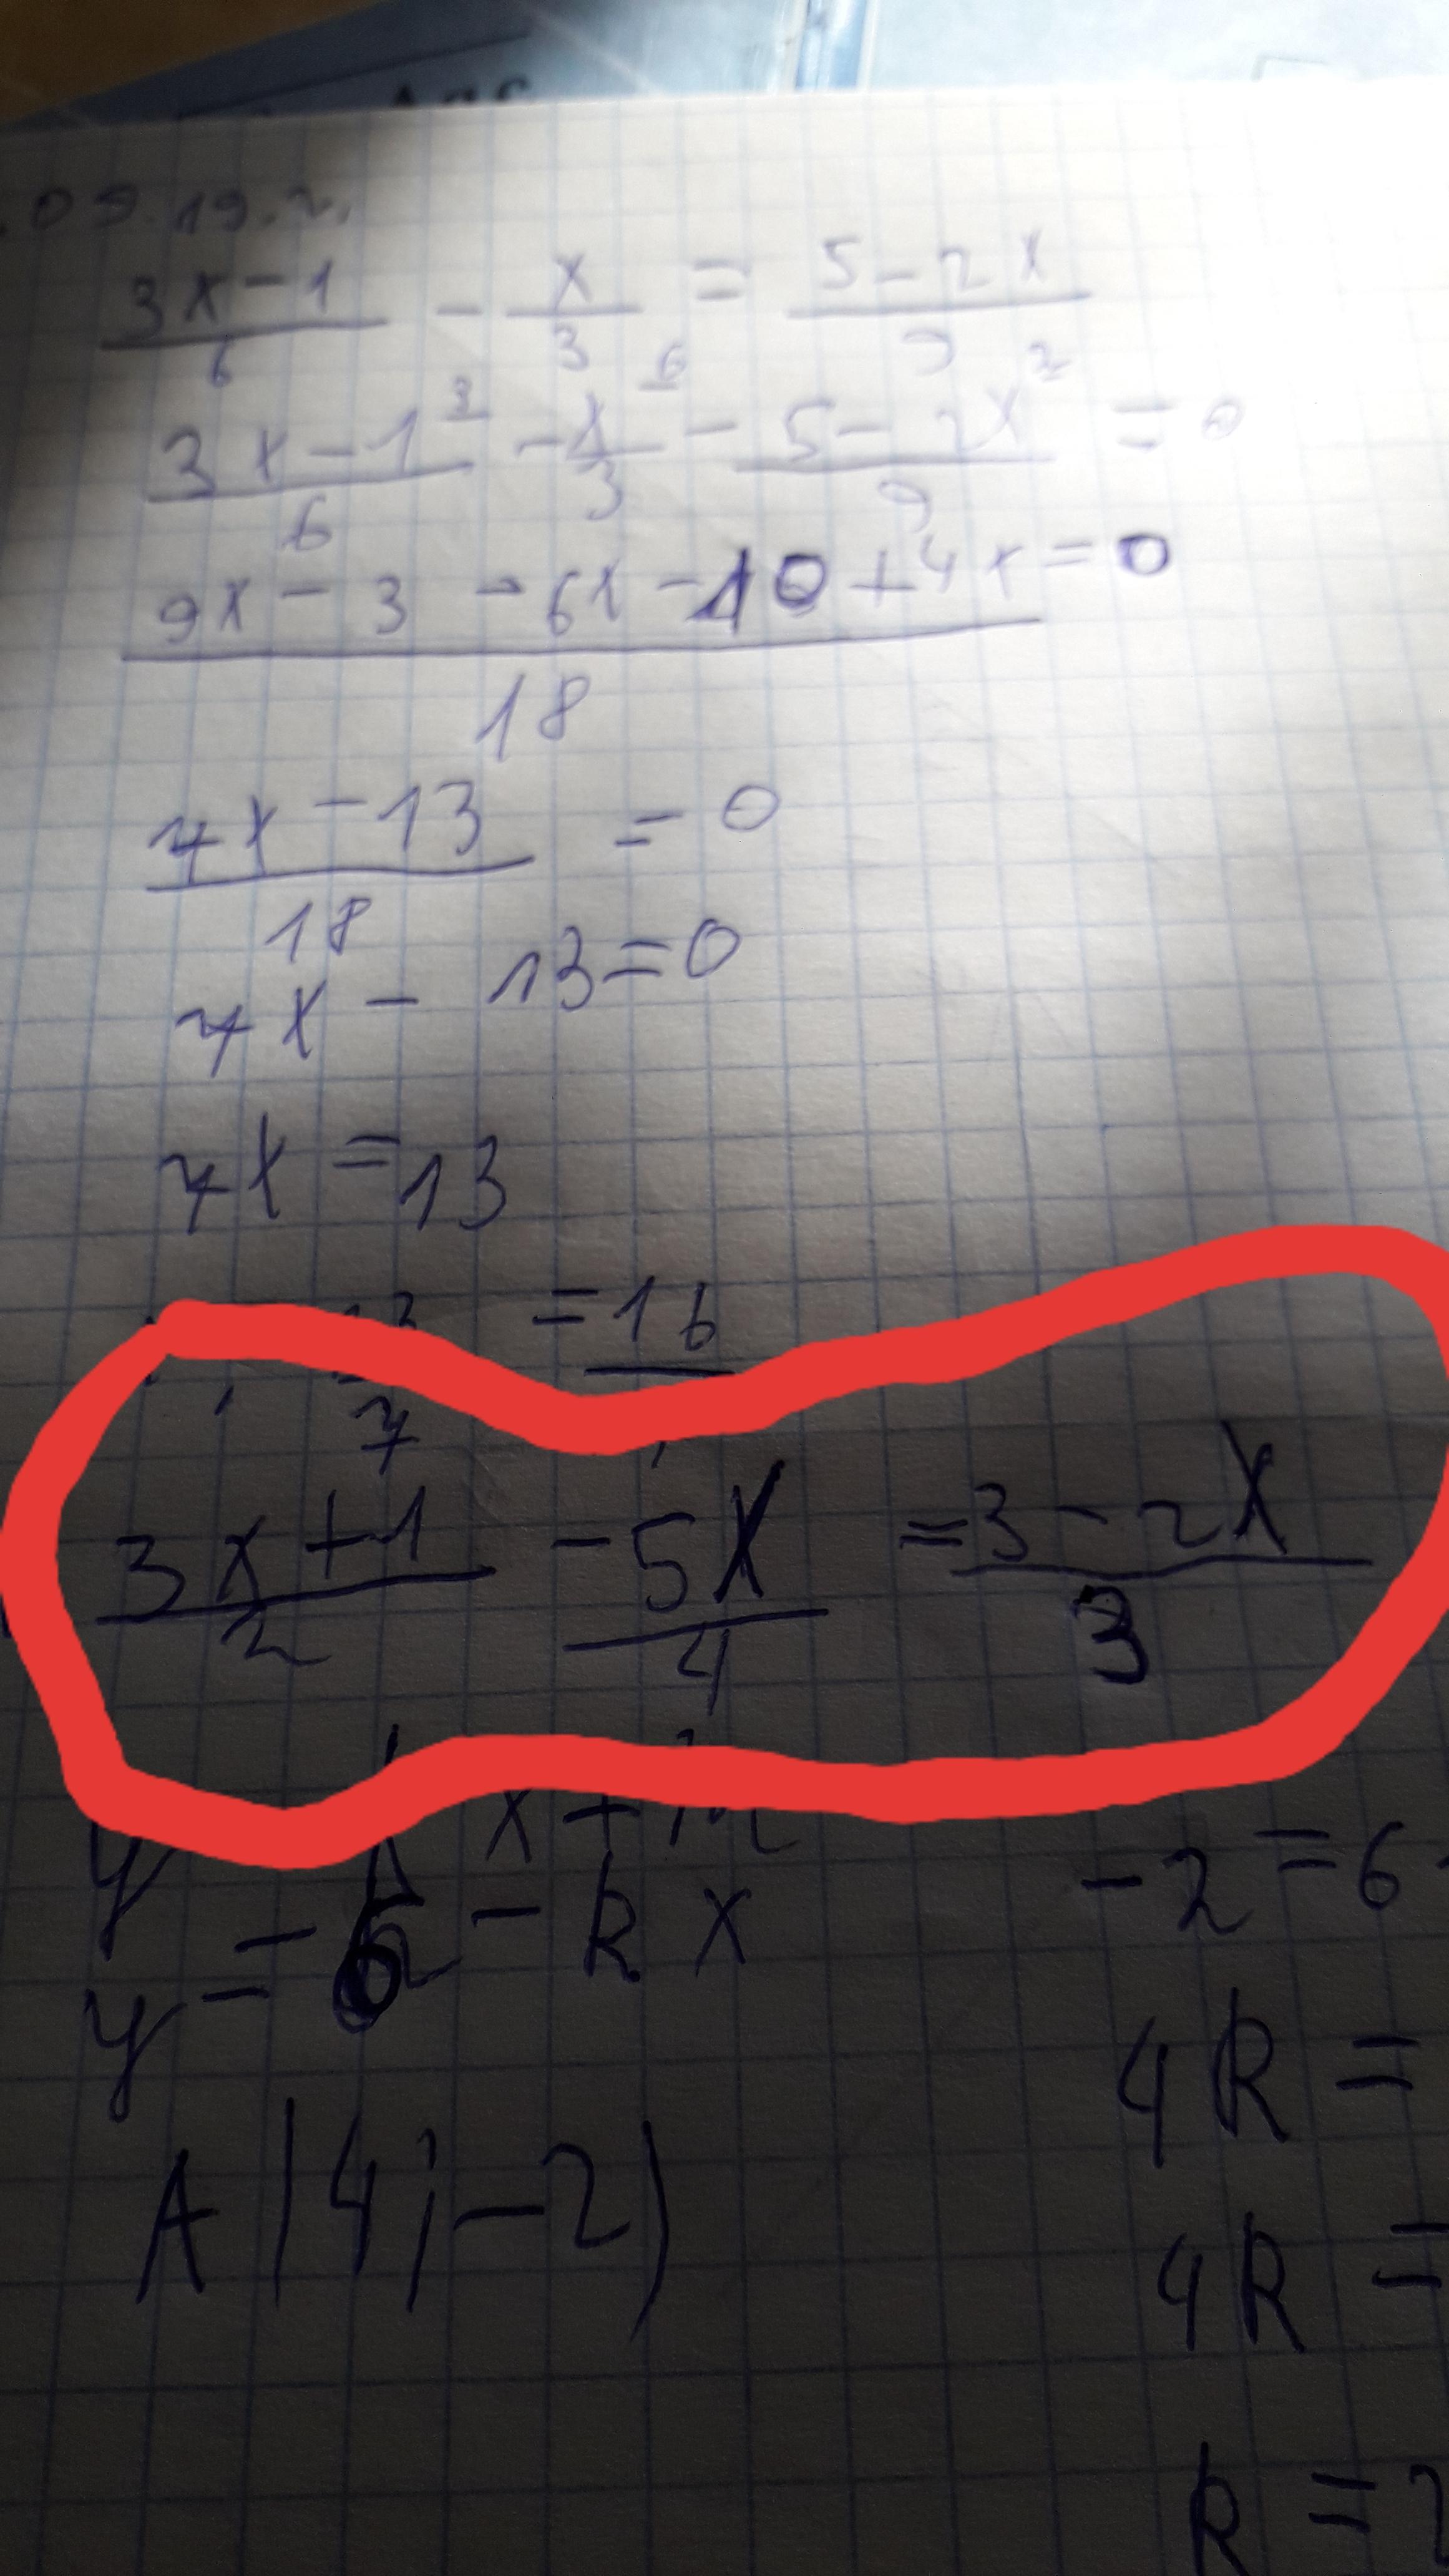 .09.19.г.
3x-1/6 - x/3 = 5-2x/9
3x-1/6 ³ - x/3 ⁶ - 5-2x/9 ² = 0
9x-3-6x-10+4x/18 = 0
7x-13/18 = 0
7x-13=0
7x=13
13/7 = 16
3x+1/2 - 5x/4 = 3-2x/3
y x+m
y=6-kx
A(4;-2)
-2=6
4k=
4k=
k=2